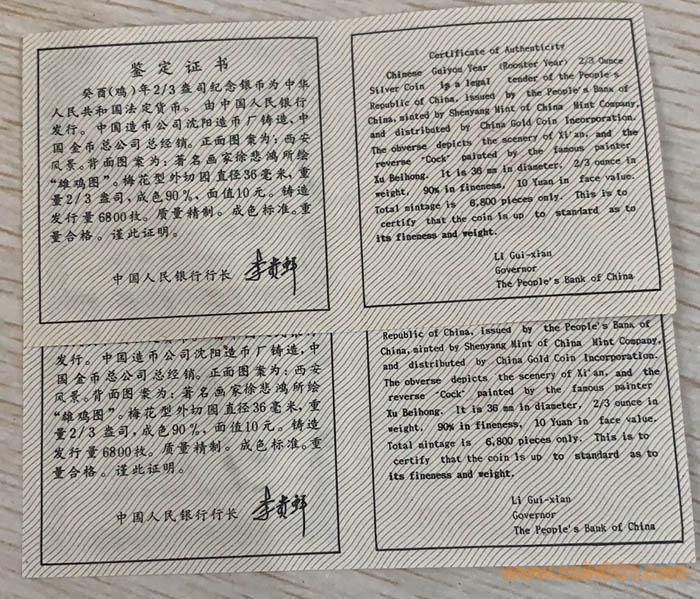 鉴定证书
癸酉(鸡)年2/3盎司纪念银币为中华
人民共和国法定货币。由中国人民银行
发行。中国造币公司沈阳造币厂铸造、中
国金币总公司总经销。正面图案为:西安
风景。背面图案为:著名画家徐悲鸿所绘
“雄鸡图”。梅花型外切园直径36毫米,重
量2/3盎司,成色90%,面值10元。铸造
发行量6800枚。质量精制。成色标准。重
量合格。谨此证明。
中国人民银行行长 李贵鲜
Certificate of Authenticity
Chinese Guiyou Year (Rooster Year) 2/3 Ounce
Silver Coin is a legal tender of the People's
Republic of China, issued by the People's Bank of
China, minted by Shenyang Mint of China Mint Company,
and distributed by China Gold Coin Incorporation.
The obverse depicts the scenery of Xi'an, and the
reverse "Cock" painted by the famous painter
Xu Beihong. It is 36 mm in diameter, 2/3 ounce in
weight, 90% in fineness, 10 Yuan in face value.
Total mintage is 6,800 pieces only. This is to
certify that the coin is up to standard as to
its fineness and weight.
Li Gui-xian
Governor
The People's Bank of China
发行。中国造币公司沈阳造币厂铸造,中
国金币总公司总经销。正面图案为:西安
风景。背面图案为:著名画家徐悲鸿所绘
“雄鸡图”。梅花型外切园直径36毫米,重
量2/3盎司,成色90%,面值10元。铸造
发行量6800枚。质量精制。成色标准。重
量合格。谨此证明。
中国人民银行行长 李贵鲜
Republic of China, issued by the People's Bank of
China, minted by Shenyang Mint of China Mint Company,
and distributed by China Gold Coin Incorporation.
The obverse depicts the scenery of Xi'an, and the
reverse "Cock" painted by the famous painter
Xu Beihong. It is 36 mm in diameter, 2/3 ounce in
weight, 90% in fineness, 10 Yuan in face value.
Total mintage is 6,800 pieces only. This is to
certify that the coin is up to standard as to
its fineness and weight.
Li Gui-xian
Governor
The People's Bank of China
www.coin001.com